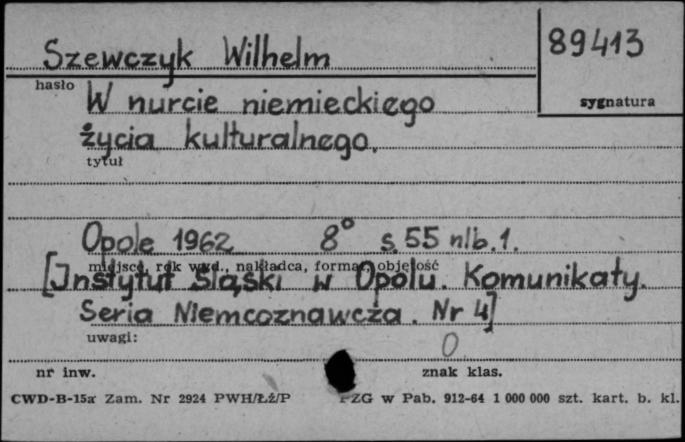 Szewczyk Wilhelm
89413
hasło
sygnatura
W nurcie niemieckiego
życia kulturalnego.
tytuł
Opole 1962 8° s. 55 nlb. 1.
miejsce, rok wyd., nakładca, format, objętość
[Instytut Śląski w Opolu. Komunikaty.
Seria Niemcoznawcza. Nr 4]
uwagi:
0
nr inw.
znak klas.
CWD-B-15a Zam. Nr 2924 PWH/Łż/P PZG w Pab. 912-64 1 000 000 szt. kart. b. kl.